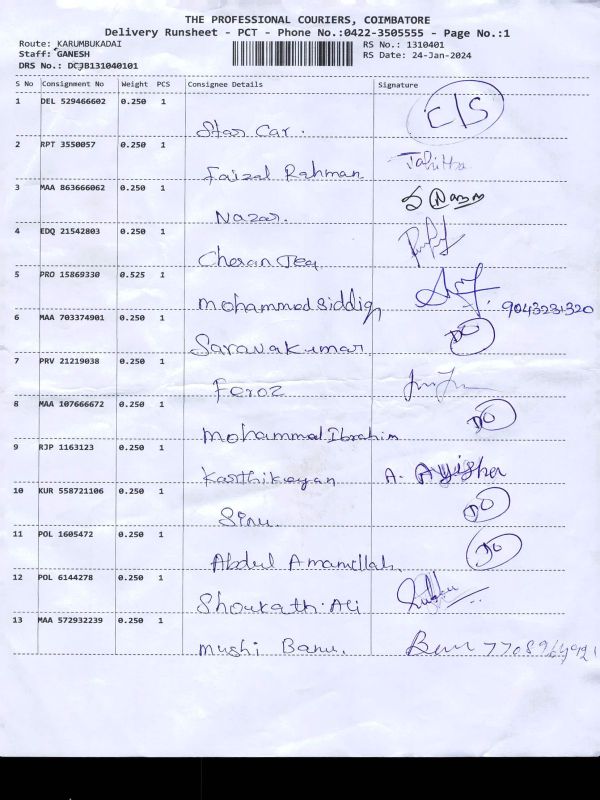 THE PROFESSIONAL COURIERS, COIMBATORE
Delivery Runsheet - PCT - Phone No.:0422-3505555 - Page No.:1
Route: KARUMBUKADAI RS No.: 1310401
Staff: GANESH RS Date: 24-Jan-2024
DRS No.: DCJB131040101
S No Consignment No Weight PCS Consignee Details Signature
1 DEL 529466602 0.250 1
Star Car. C/S
2 RPT 3550057 0.250 1
Faizal Rahman
3 MAA 863666062 0.250 1
Nazar.
4 EDQ 21542803 0.250 1
Cheran Tea
5 PRO 15869330 0.525 1
Mohammed Siddiq 9043231320
6 MAA 703374901 0.250 1 DO
Saravakumar
7 PRV 21219038 0.250 1
Feroz
8 MAA 107666672 0.250 1 DO
Mohammed Ibrahim
9 RJP 1163123 0.250 1
Karthikeyan A. Ayisha
10 KUR 558721106 0.250 1 DO
Sinu.
11 POL 1605472 0.250 1 DO
Abdul Amanullah.
12 POL 6144278 0.250 1
Shoukath Ali
13 MAA 572932239 0.250 1
Mushi Banu.